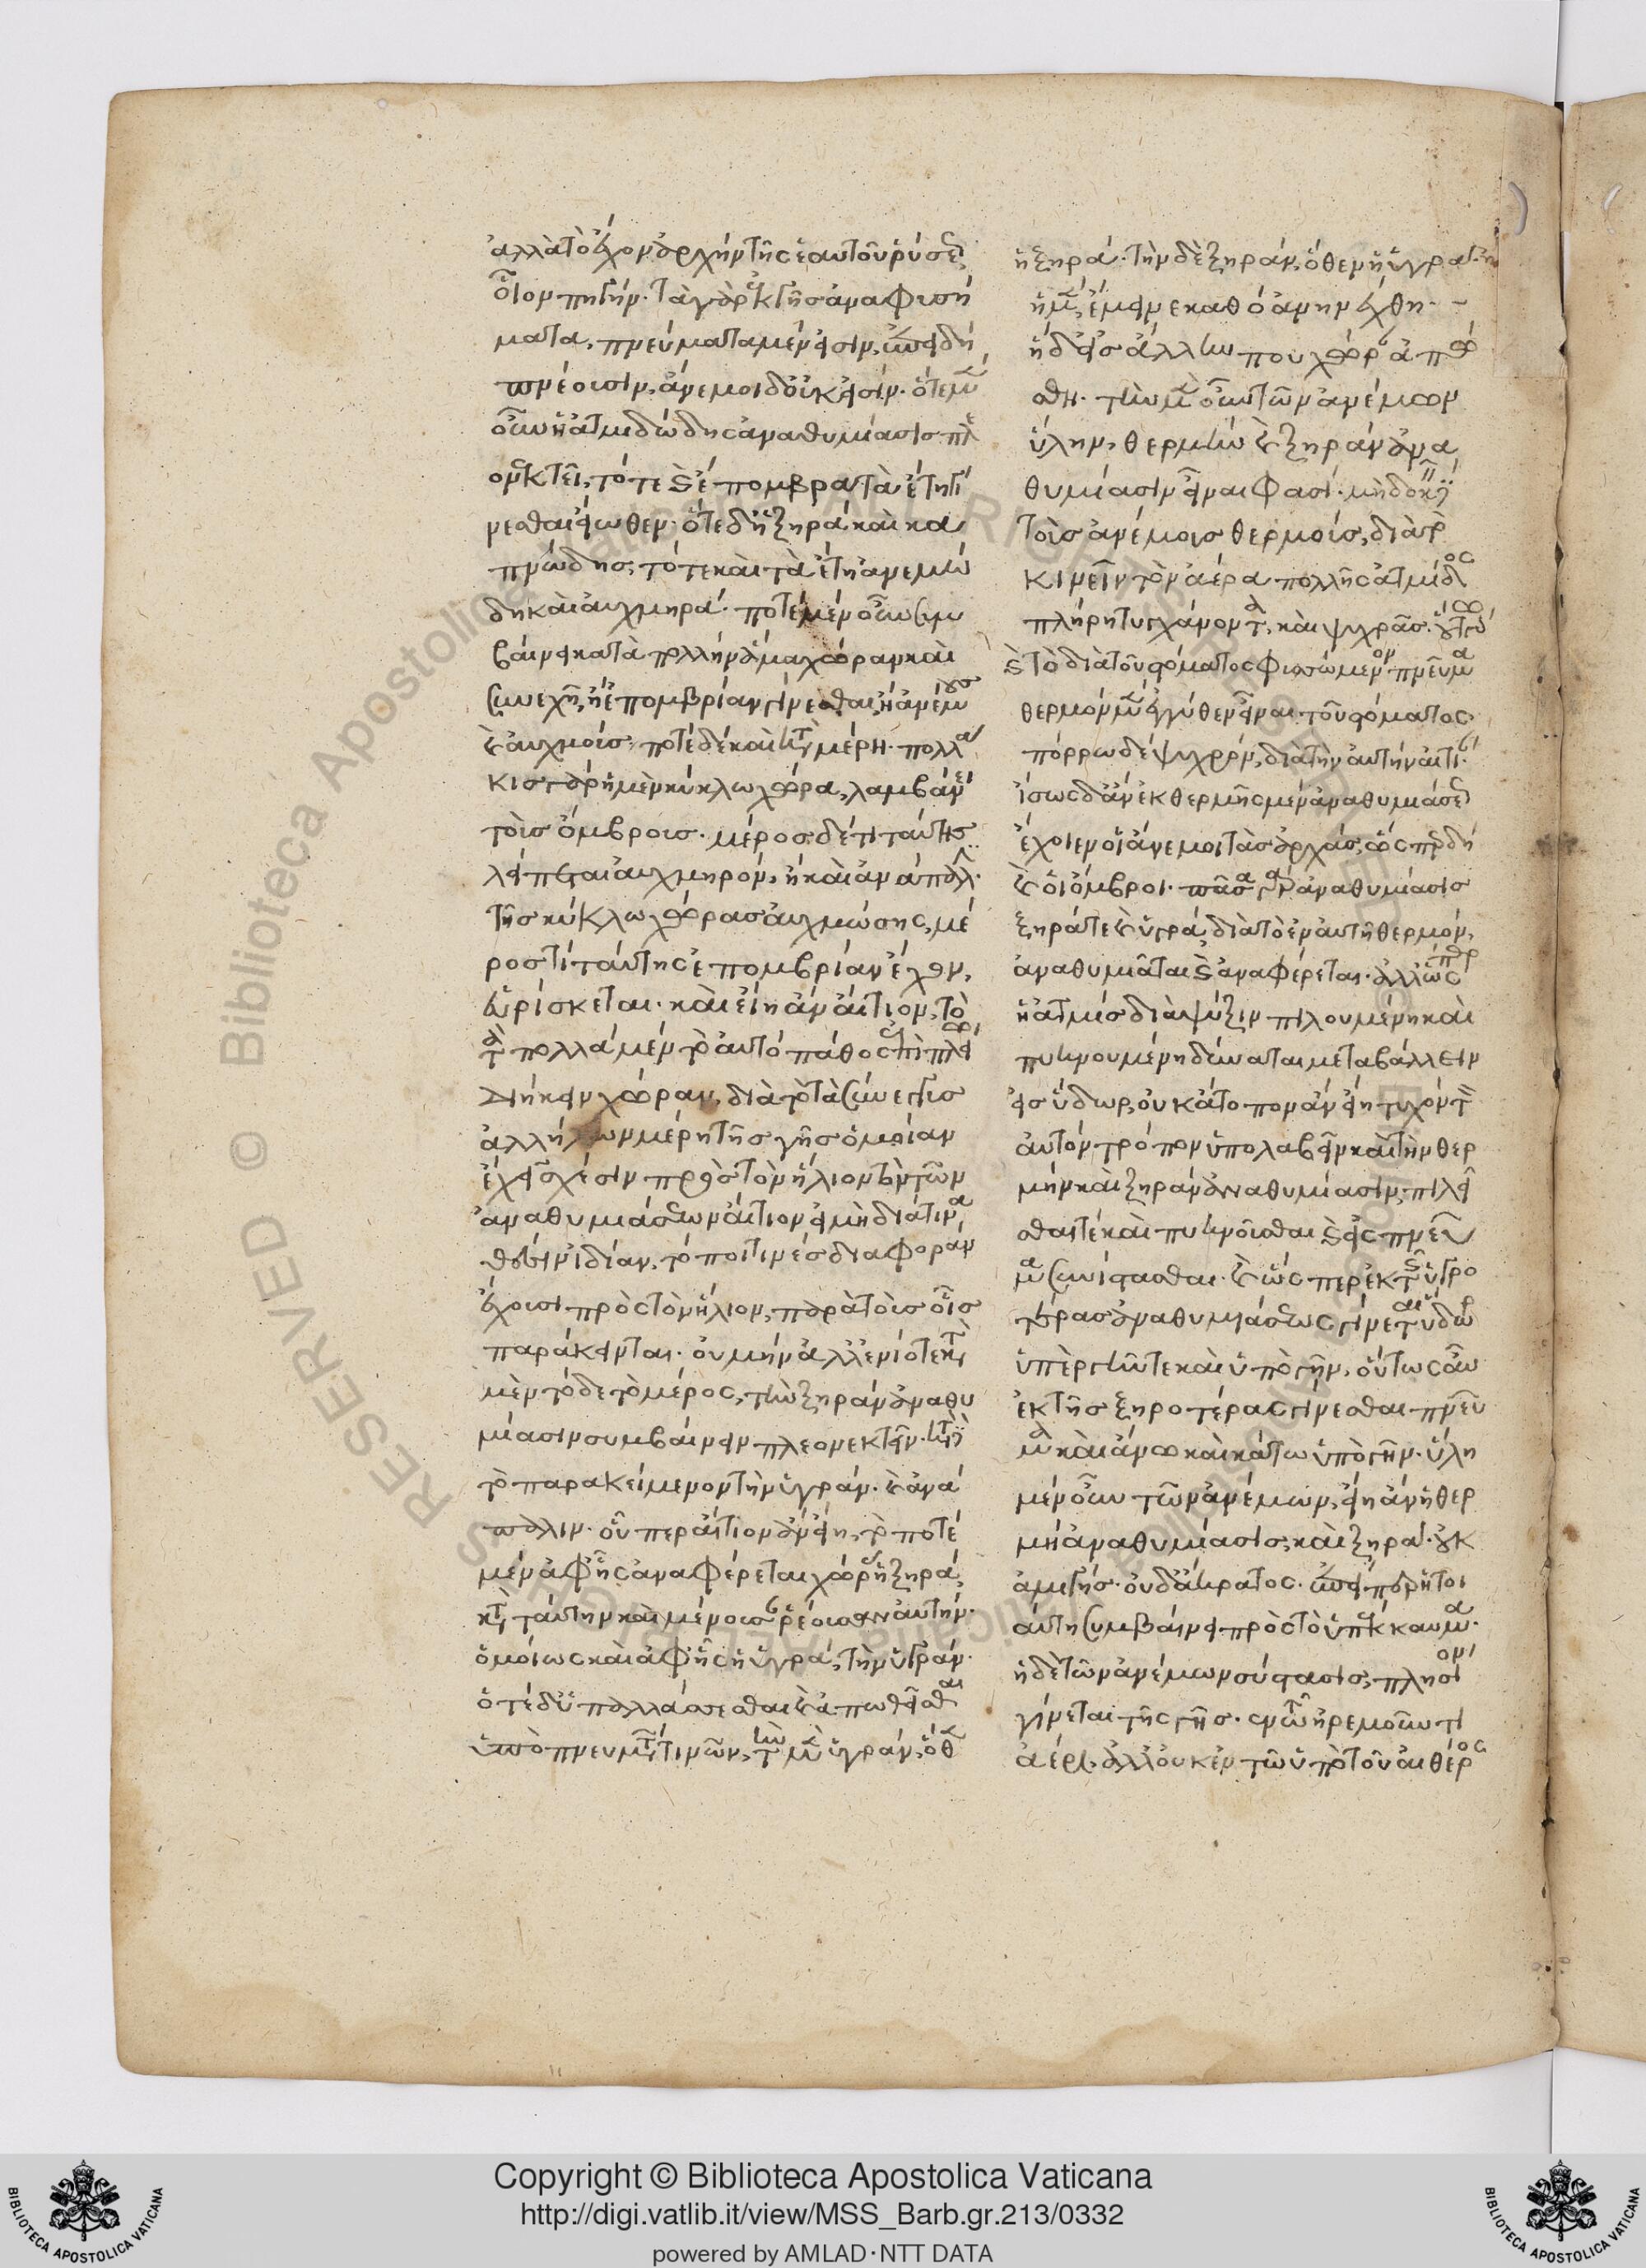 ἀλλὰ τὸ ἔχον ἀρχὴν τῆς ἑαυτοῦ ῥύσεως
οἷον πηγήν. τὰ γὰρ ἐκ γῆς ἀναφυσή
ματα, πνεύματα μέν εἰσιν,
ἄνεμοι δ' οὐκ εἰσίν. ὅτε μὲν
οὖν ἡ ἀτμιδώδης ἀναθυμίασις πλε
ονεκτεῖ, τότε καὶ ἔπομβρα τὰ ἔτη γί
νεσθαι εἴωθεν. ὅτε δ' ἡ ξηρά καὶ κα
πνώδης, τότε καὶ τὰ ἔτη ἀνεμώ
δη καὶ αὐχμηρά. ποτὲ μὲν οὖν συμ
βαίνει κατὰ πολλὴν ἅμα χώραν καὶ
συνεχῆ, ἢ ἐπομβρίαν γίνεσθαι, ἢ ἀνέμους
καὶ αὐχμούς. ποτὲ δὲ καὶ κατὰ μέρη. πολλά
κις γὰρ ἡ μὲν κύκλω χώρα, λαμβάνει
τοῖς ὄμβροις. μέρος δέ τι ταύτης
λείπεται αὐχμηρόν, ἢ καὶ ἀνάπαλιν
τῆς κύκλω χώρας αὐχμώσης, μέ
ρος τι ταύτης ἐπομβρίαν ἔχον,
εὑρίσκεται. καὶ εἴη ἂν αἴτιον, τὸ
τὰ πολλὰ μὲν τὸ αὐτὸ πάθος ἐπὶ πλείω
διήκειν χώραν, διὰ τὸ τὰ σύνεγγυς
ἀλλήλων μέρη τῆς γῆς ὁμοίαν
ἔχειν σχέσιν πρὸς τὸν ἥλιον τὸν τῶν
ἀναθυμιάσεων αἴτιον εἰ μὴ διά τινα
θέσιν ἰδίαν, τόποι τινὲς διαφορὰν
ἔχοιεν πρὸς τὸν ἥλιον, παρὰ τοὺς οἷς
παράκεινται. οὐ μὴν ἀλλ' ἐνίοτε κατὰ
μὲν τόδε τὸ μέρος, τὴν ξηρὰν ἀναθυ
μίασιν συμβαίνειν πλεονεκτεῖν. κατὰ δὲ
τὸ παρακείμενον τὴν ὑγράν. καὶ ἀνά
παλιν. οὗπερ αἴτιον ἂν εἴη, τὸ ποτὲ
μὲν ἀφ' ἧς ἀναφέρεται χώρας ἡ ξηρά,
κατὰ ταύτην καὶ μένουσα ῥέουσαν αὐτήν.
ὁμοίως καὶ ἀφ' ἧς ἡ ὑγρά, τὴν ὑγράν.
ὁτὲ δ' ὑπαλλάσσεσθαι καὶ ἀπωθεῖσθαι
ὑπὸ πνευμάτων τινῶν, τὴν μὲν ὑγράν, ὅθεν
ἡ ξηρά. τὴν δὲ ξηράν, ὅθεν ἡ ὑγρά.
ἢ μὲν, ἔμεινεν καθ' ὃ ἀνηνέχθη.
ἡ δ' εἰς ἄλλην που χώραν ἀπεώ
σθη. τὴν μὲν οὖν τῶν ἀνέμων
ὕλην, θερμὴν καὶ ξηρὰν ἀνα
θυμίασιν εἶναι φασί. μὴ δοκεῖν δὲ
τοὺς ἀνέμους θερμούς, διὰ τὸ
κινεῖν τὸν ἀέρα πολλῆς ἀτμίδος
πλήρη τυγχάνοντα, καὶ ψυχρᾶς. οὕτω
καὶ τὸ διὰ τοῦ στόματος φυσώμενον πνεῦμα
θερμὸν μὲν ἐγγύθεν εἶναι τοῦ στόματος
πόρρω δὲ ψυχρόν, διὰ τὴν αὐτὴν αἰτίαν.
ἴσως δ' ἂν ἐκ θερμῆς μὲν ἀναθυμιάσεως
ἔχοιεν οἱ ἄνεμοι τὰς ἀρχάς, ὥσπερ δὴ
καὶ οἱ ὄμβροι. πᾶσα γὰρ ἀναθυμίασις
ξηρά τε καὶ ὑγρά, διὰ τὸ ἐν αὐτῆ θερμόν,
ἀναθυμιᾶται καὶ ἀναφέρεται. ἀλλ' ὥσπερ
ἡ ἀτμὶς διὰ ψύξιν πιλουμένη καὶ
πυκνουμένη δύναται μεταβάλλειν
εἰς ὕδωρ, οὐκ ἄτοπον ἂν εἴη τυχὸν τὸν
αὐτὸν τρόπον ὑπολαβεῖν καὶ τὴν θερ
μὴν καὶ ξηρὰν ἀναθυμίασιν, πιλεῖ
σθαί τε καὶ πυκνοῦσθαι καὶ εἰς πνεύ
μα συνίστασθαι. καὶ ὥσπερ ἐκ τῆς ὑγρο
τέρας ἀναθυμιάσεως γίνεται ὕδωρ
ὑπὲρ γῆν τε καὶ ὑπὸ γῆν, οὕτως αὖ
ἐκ τῆς ξηροτέρας γίνεσθαι πνεύ
μα καὶ ἄνω καὶ κάτω ὑπὸ γῆν. ὕλη
μὲν οὖν τῶν ἀνέμων, εἴη ἂν ἡ θερ
μὴ ἀναθυμίασις καὶ ξηρά. οὐκ
ἀμιγής. οὐδ' ἄκρατος.
αὕτη συμβαίνει πρὸς τὸ ὑπέκκαυμα.
ἡ δὲ τῶν ἀνέμων σύστασις, πλησίον
γίνεται τῆς γῆς. ἐν τῶ ἠρεμοῦντι
ἀέρι, ἀλλ' οὐκ ἐν τῶ ὑπὸ τοῦ αἰθέρος
Copyright © Biblioteca Apostolica Vaticana
http://digi.vatlib.it/view/MSS_Barb.gr.213/0332
powered by AMLAD·NTT DATA